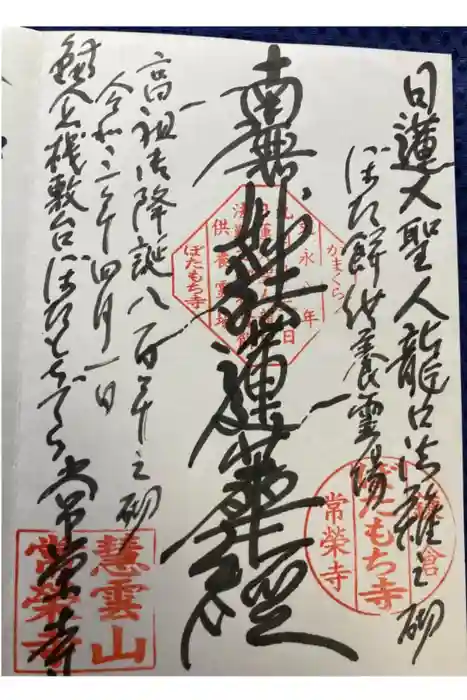 日蓮大聖人龍口法難之砌
ぼた餅供養霊場
南無妙法蓮華経
高祖御降誕八百年之砌
令和三年四月一日
鎌倉桟敷台ぼたもちでら常栄寺
かまくら
文永八年
九月十二日
日蓮大聖人龍口
法難
供養霊場
ぼたもち寺
鎌倉
ぼたもち寺
常榮寺
慧雲山
常榮寺